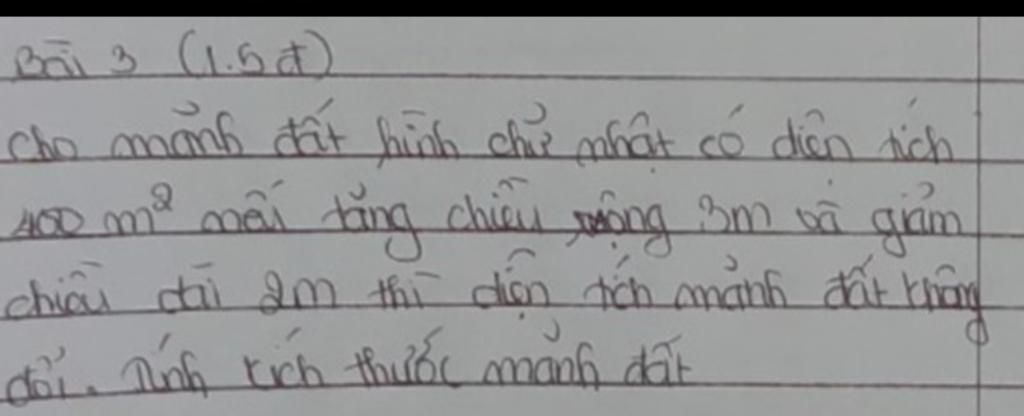 Bài 3 (1.5đ)
Cho mảnh đất hình chữ nhật có diện tích
400 m² nếu tăng chiều rộng 3m và giảm
chiều dài 2m thì diện tích mảnh đất không
đổi. Tính kích thước mảnh đất